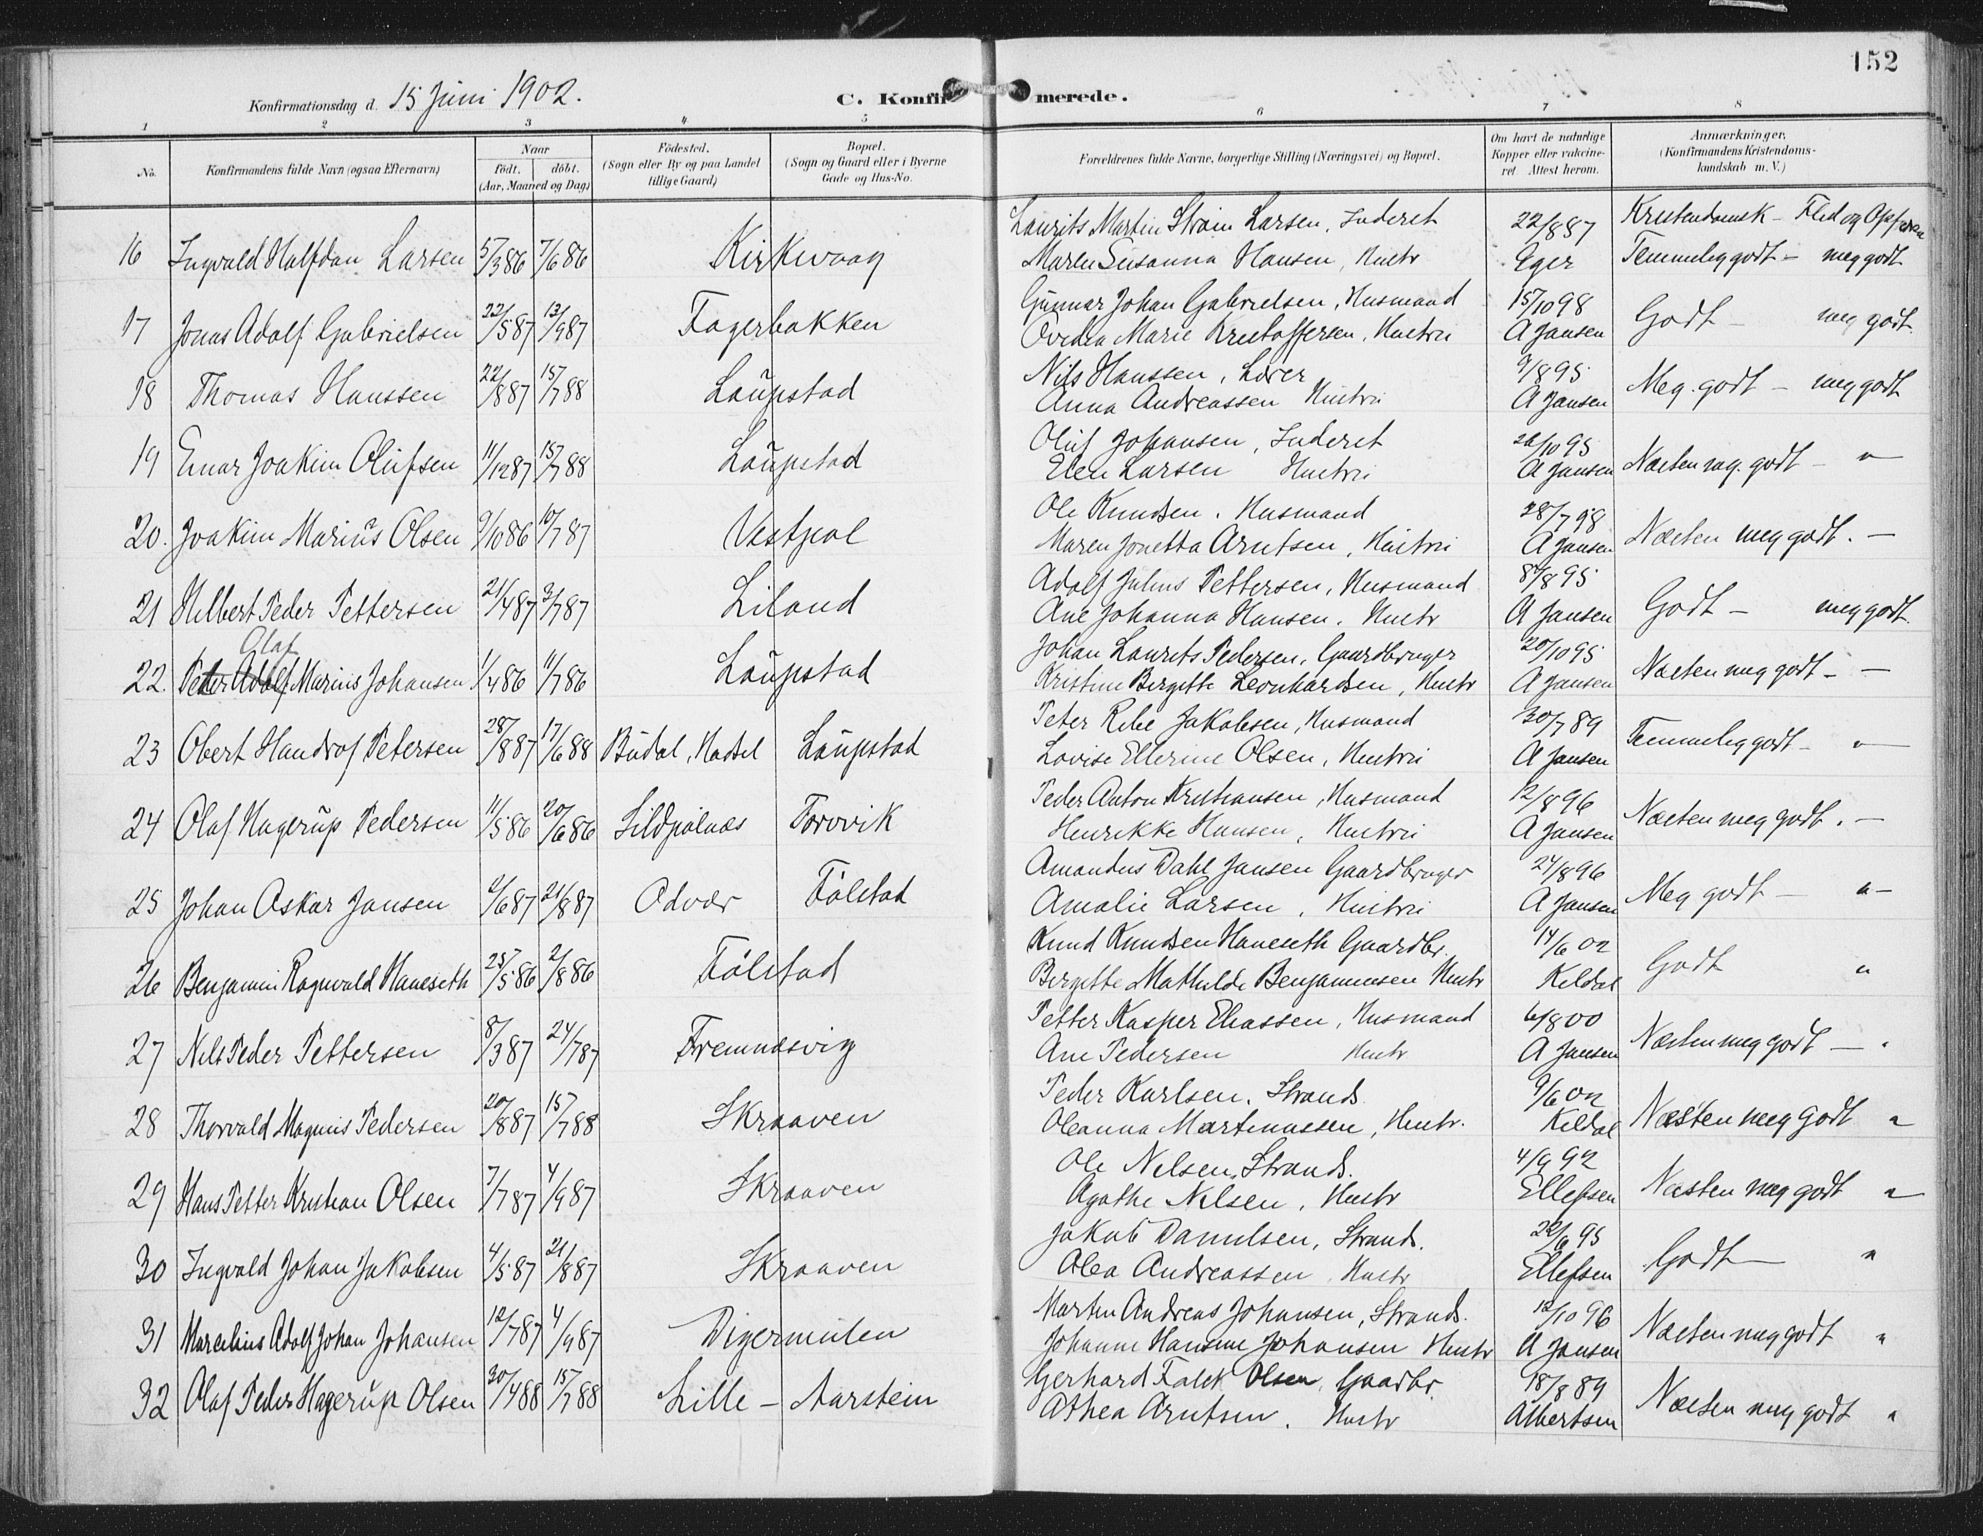 152
Konfirmationsdag d. 15 Juni 1902.
C. Konfirmerede.
1 2 3 4 5 6 7 8
No. Konfirmandens fulde Navn (ogsaa Efternavn) Naar født. døbt. (Aar, Maaned og Dag) Fødested. (Sogn eller By og paa Landet tillige Gaard) Bopæl. (Sogn og Gaard eller i Byerne Gade og Hus-No. Forældrenes fulde Navne, borgerlige Stilling (Næringsvei) og Bopæl. Om havt de naturlige Kopper eller vakcineret Attest herom. Anmærkninger, (Konfirmandens Kristendomskundskab m. V.)
Kristendomsk - Flid og
16 Ingvald Halfdan Larsen 5/3 86 7/6 86 Kirkvaag Laurits Martin Larsen, Inderst 22/8 87 Temmelig godt - meg godt
Maren Susanna Hansen, Hustr Eger
17 Jonas Adolf Gabrielsen 22/5 87 12/9 87 Fagerbakken Gunnar Johan Gabrielsen, Husmand 15/10 98 Godt - meg godt.
Ovedia Marie Kristoffersen, Hustru A Jansen
18 Thomas Hanssen 22/8 87 15/7 88 Laupstad Nils Hanssen, Lærer 9/8 95 Meg. godt - meg godt
Anna Andreassen Hustru A Jansen
19 Einar Joakim Olufsen 11/12 87 15/7 88 Laupstad Oluf Johansen, Inderst 26/10 95 Næsten meg. godt - "
Elen Larsen Hustru A Jansen
20. Joakim Marius Olsen 9/10 86 10/7 87 Vestpol Ole Knudsen. Husmand 28/7 98 Næsten meg godt. -
Maren Jonetta Arntsen, Hustru A Jansen
21 Hilbert Peder Pettersen 21/4 87 3/7 87 Liland Adolf Julius Pettersen, Husmand 8/8 95 Godt - meg godt.
Ane Johanna Hansen. Hustr A Jansen
Olaf
22. Peter Adolf Marius Johansen 1/4 86 11/7 86 Laupstad Johan Laurits Pedersen, Gaardbruger 20/10 95 Næsten meg godt - -
Kristine Bergitte Leonhardsen, Hustr A Jansen
23 Obert Handrof Petersen 28/8 87 17/6 88 Budal, Hadsel Laupstad Peter Ribe Jakobsen, Husmand 30/7 89 Temmelig godt - "
Lovise Ellerine Olsen, Hustru A Jansen
24 Olaf Hagerup Pedersen 11/5 86 20/6 86 Sildpolnæs Torvvik Peder Anton Kristiansen, Husmand 12/8 96 Næsten meg godt. -
Henrikke Hansen, Hustru A Jansen
25 Johan Oskar Jansen 2/6 87 21/8 87 Odvær Følstad Amandus Dahl Jansen Gaardbruger 24/8 96 Meg godt - "
Amalie Larsen, Hustru A Jansen
26 Benjamin Ragnvald Haneseth 25/5 86 2/8 86 Følstad Knud Knudsen Haneseth Gaardbr. 14/6 02 Godt "
Bergitte Mathilde Benjaminsen Hustr Keldal
27 Nils Peder Pettersen 8/3 87 24/7 87 Fremnesvig Petter Kasper Eliassen, Husmand 6/8 00 Næsten meg godt - "
Ane Pedersen Hustr A Jansen
28 Thorvald Magnus Pedersen 20/8 87 15/7 88 Skraaven Peder Karlsen. Strands. 9/6 02 Næsten meg godt "
Oleanna Martinussen, Hustr. Keldal
29 Hans Petter Kristian Olsen 7/7 87 4/9 87 Skraaven Ole Nilsen, Strands. 4/9 92 Næsten meg godt "
Agathe Nilsen, Hustr Ellefsen
30 Ingvald Johan Jakobsen 4/5 87 21/8 87 Skraaven Jakob Danielsen, Strands. 22/6 95 Godt - "
Olea Andreassen Hustr Ellefsen
31 Marcelius Adolf Johan Johansen 12/7 87 4/9 87 Digermulen Martin Andreas Johansen, Strands. 12/10 96 Næsten meg godt "
Johanne Hansine Johansen Hustr A Jansen
32 Olaf Peder Hagerup Olsen 30/4 88 15/7 88 Lille - Aarstein Gerhard Falck Olsen, Gaardbr. 18/8 89 Næsten meg godt "
Athea Arntsen. Hustr Albertsen